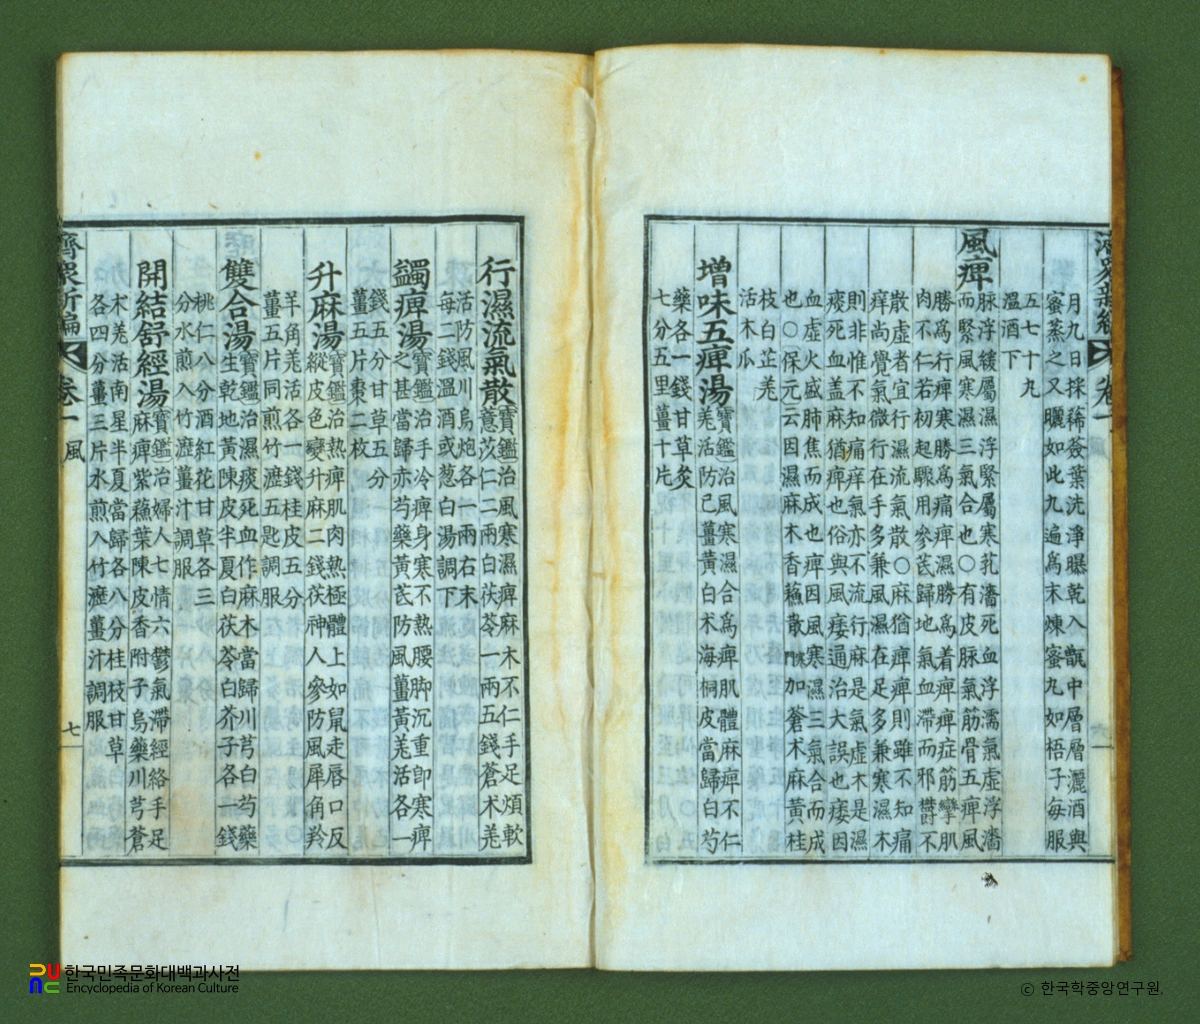 濟眾新編 卷一
月九日採稀簽葉洗淨曝乾入甑中層層灑酒與
蜜蒸之又曬如此九遍爲末煉蜜丸如梧子每服
五七十丸
溫酒下
風痺
脉浮緩屬濕浮緊屬寒芤濇死血浮濡氣虛浮濇
而緊風寒濕三氣合也〇有皮脉氣筋骨五痺風
勝爲行痺寒勝爲痛痺濕勝爲着痺痺症筋攣肌
肉不仁若初起驟用參芪歸地氣血滯而邪欝不
散虛者宜行濕流氣散〇麻猶痺痺則雖不知痛
痒尚覺氣微行在手多兼風濕在足多兼寒濕木
則非惟不知痛痒氣亦不流行麻是氣虛木是濕
痰死血盖麻猶痺也俗與風痿通治大誤也痿因
血虛火盛肺焦而成也痺因風寒濕三氣合而成
也〇保元云因濕麻木香蘓散加蒼朮麻黃桂
枝白芷羌
活木瓜
增味五痺湯 寶鑑治風寒濕合爲痺肌體麻痺不仁
羌活防己薑黃白朮海桐皮當歸白芍
藥各一錢甘草灸
七分五里薑十片
行濕流氣散 寶鑑治風寒濕痺麻木不仁手足煩軟
薏苡仁二兩白茯苓一兩五錢蒼朮羌
活防風川烏炮各一兩右末
每二錢溫酒或葱白湯調下
蠲痺湯 寶鑑治手冷痺身寒不熱腰脚沉重卽寒痺
之甚當歸赤芍藥黃芪防風薑黃羌活各一
錢五分甘草五分
薑五片棗二枚
升麻湯 寶鑑治熱痺肌肉熱極體上如鼠走唇口反
縱皮色變升麻二錢茯神人參防風犀角羚
羊角羌活各一錢桂皮五分
薑五片同煎竹瀝五匙調服
雙合湯 寶鑑治濕痰死血作麻木當歸川芎白芍藥
生乾地黃陳皮半夏白茯苓白芥子各一錢
桃仁八分酒紅花甘草各三
分水煎入竹瀝薑汁調服
開結舒經湯 寶鑑治婦人七情六鬱氣滯經絡手足
麻痺紫蘓葉陳皮香附子烏藥川芎蒼
朮羌活南星半夏當歸各八分桂枝甘草
各四分薑三片水煎入竹瀝薑汁調服
濟眾新編 卷一 風 七
PUNC 한국민족문화대백과사전
Encyclopedia of Korean Culture
ⓒ 한국학중앙연구원.